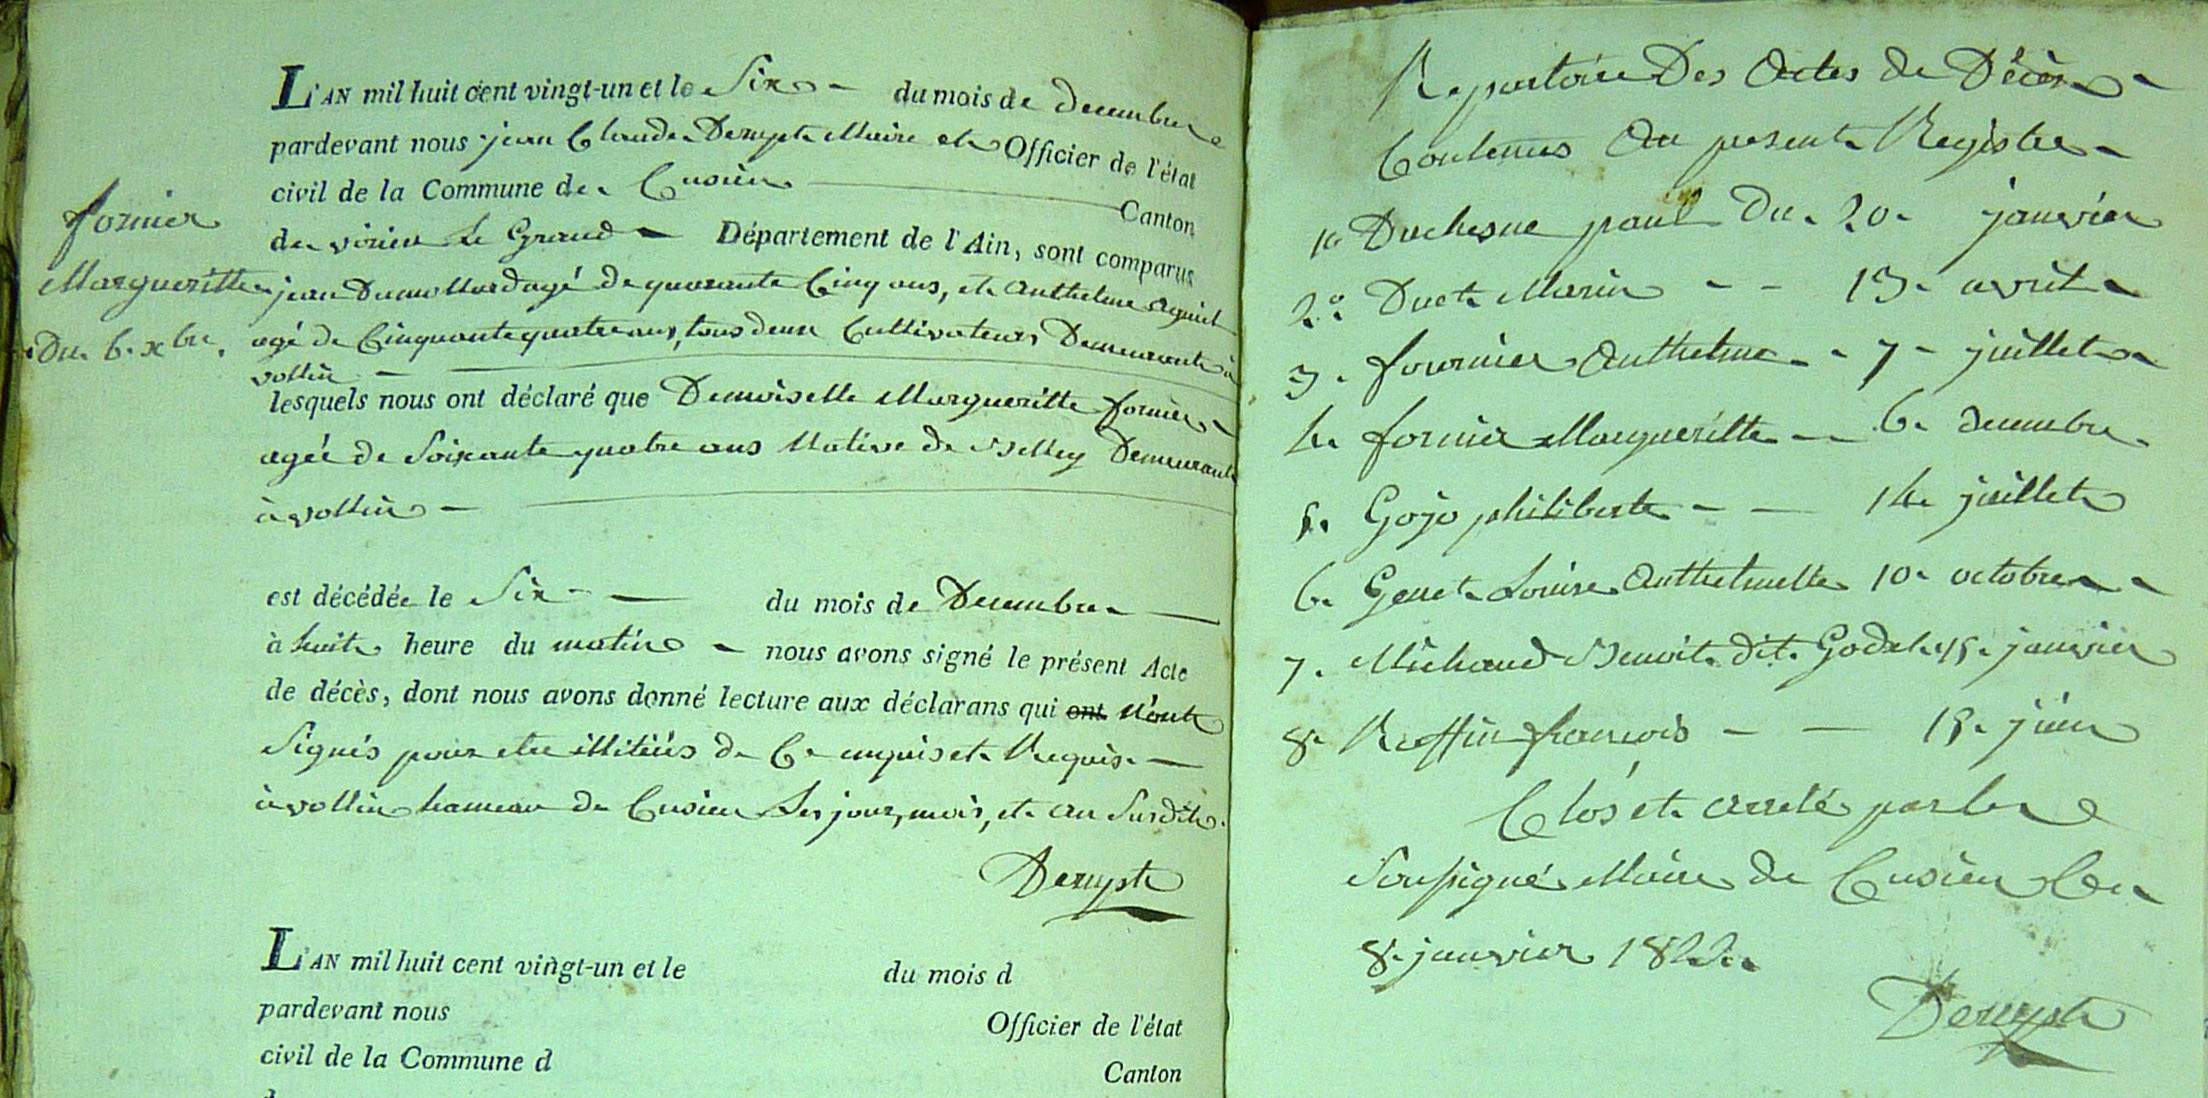 fornier
Margueritte
Du 6. xbre.
L'AN mil huit cent vingt-un et le Six du mois de decembre
pardevant nous jean Claude Deruyste Maire et Officier de l'état
civil de la Commune de Cusieu Canton
de virieu Le Grand Département de l'Ain, sont comparus
jean Dumollard agé de quarante Cinq ans, et Anthelme
agé de Cinquante quatre ans, tous deux Cultivateurs Demeurants à
vollin
lesquels nous ont déclaré que Demoiselle Margueritte fornier
agée de Soixante quatre ans Native de Belley Demeurante
à vollin
est décédée le Six du mois de Decembre
à huit heure du matin nous avons signé le présent Acte
de décès, dont nous avons donné lecture aux déclarans qui ont n'ont
Signés pour etre illitiés de Ce enquis et Requis.
à vollin hameau de Cusieu Les jour, mois, et an Susdits.
Deruyste
L'AN mil huit cent vingt-un et le du mois d
pardevant nous Officier de l'état
civil de la Commune d Canton
Repertoire Des Actes de Décès
Contenus Au present Registre
1o Duchesne paul Du 20 janvier
2o Duet Marin - - 13 avril
3. fournier Anthelme - - 7 - juillet
4. fornier Margueritte - 6. decembre
5. Gojo philiberte - - 14 juillet
6. Genet Louise Anthelmette 10 octobre
7. Michaud Benoit dit Godet 15. janvier
8. Ruffin francois - - 15. juin
Clos et arreté par le
Soussigné Maire de Cusieu Ce
8. janvier 1822.
Deruyste